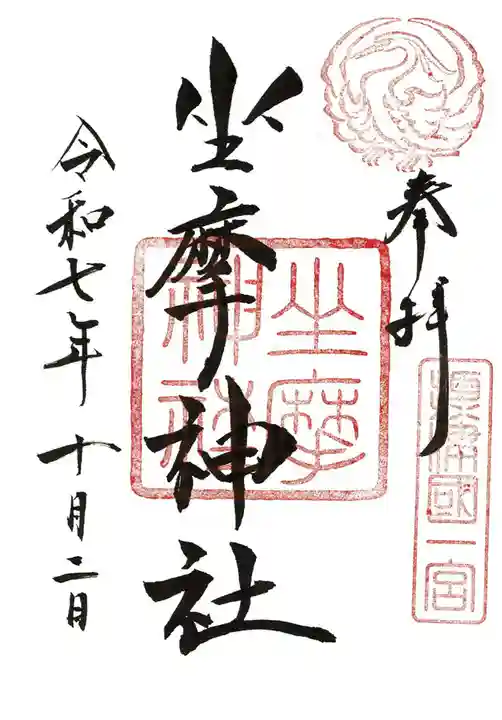 奉拝
摂津國一宮
坐摩神社
坐摩神社
令和七年十月二日